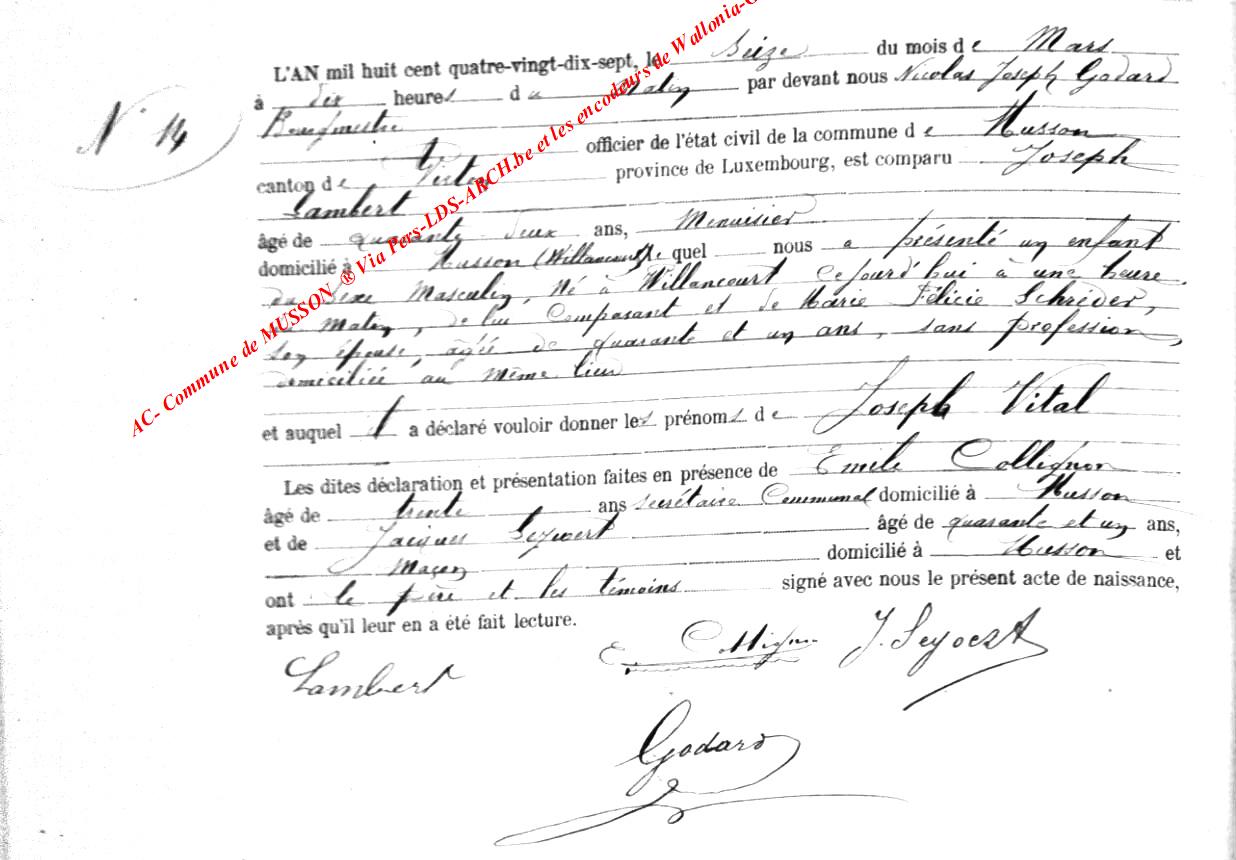 L'AN mil huit cent quatre-vingt-dix-sept, le Seize du mois de Mars
à dix heures du Matin par devant nous Nicolas Joseph Godard
N° 14
Bourgmestre
officier de l'état civil de la commune de Musson
canton de Virton province de Luxembourg, est comparu Joseph
Lambert
âgé de quarante deux ans, Menuisier
domicilié à Musson (Willancourt) lequel nous a présenté un enfant
du Sexe Masculin, Né à Willancourt Cejourd'hui à une heure
du Matin, de lui Comparant et de Marie Félicie Schréder,
son épouse, agée de quarante et un ans, sans profession,
domiciliée au même lieu
et auquel il a déclaré vouloir donner les prénoms de Joseph Vital
Les dites déclaration et présentation faites en présence de Emile Collignon
âgé de trente ans secrétaire Communal domicilié à Musson
et de Jacques âgé de quarante et un ans,
Maçon domicilié à Musson et
ont le père et les témoins signé avec nous le présent acte de naissance,
après qu'il leur en a été fait lecture.
E Collignon J. Seyvert
Lambert
Godard
AC- Commune de MUSSON ® Via Pers-LDS-ARCH.be et les encodeurs de Wallonia-G